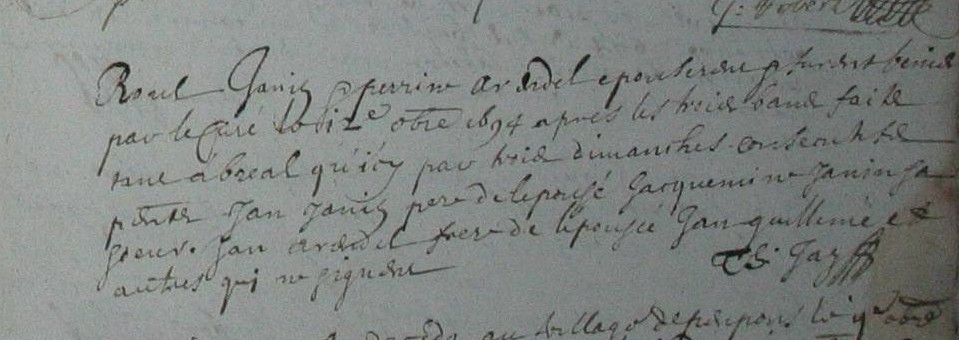 J: Robert
Roul Janin & perrine arendel epouserent & furent benis
par le Curé le 12e obre 1694 apres les trois bans faits
tant a breal qu'icy par trois dimanches consecutifs
pnts Jan Janin pere de l'epousé Jacquemine Janin sa
soeur. Jan arendel frere de l'epousée Jan guillemé et
autres qui ne signent
au village de le obre